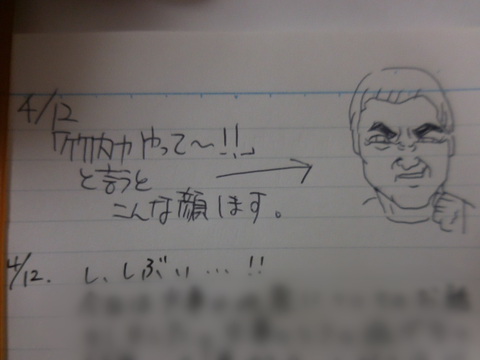 4/12
「竹内力 やって〜!!」
と言うと
こんな顔します。
4/12. し、しぶい…!!